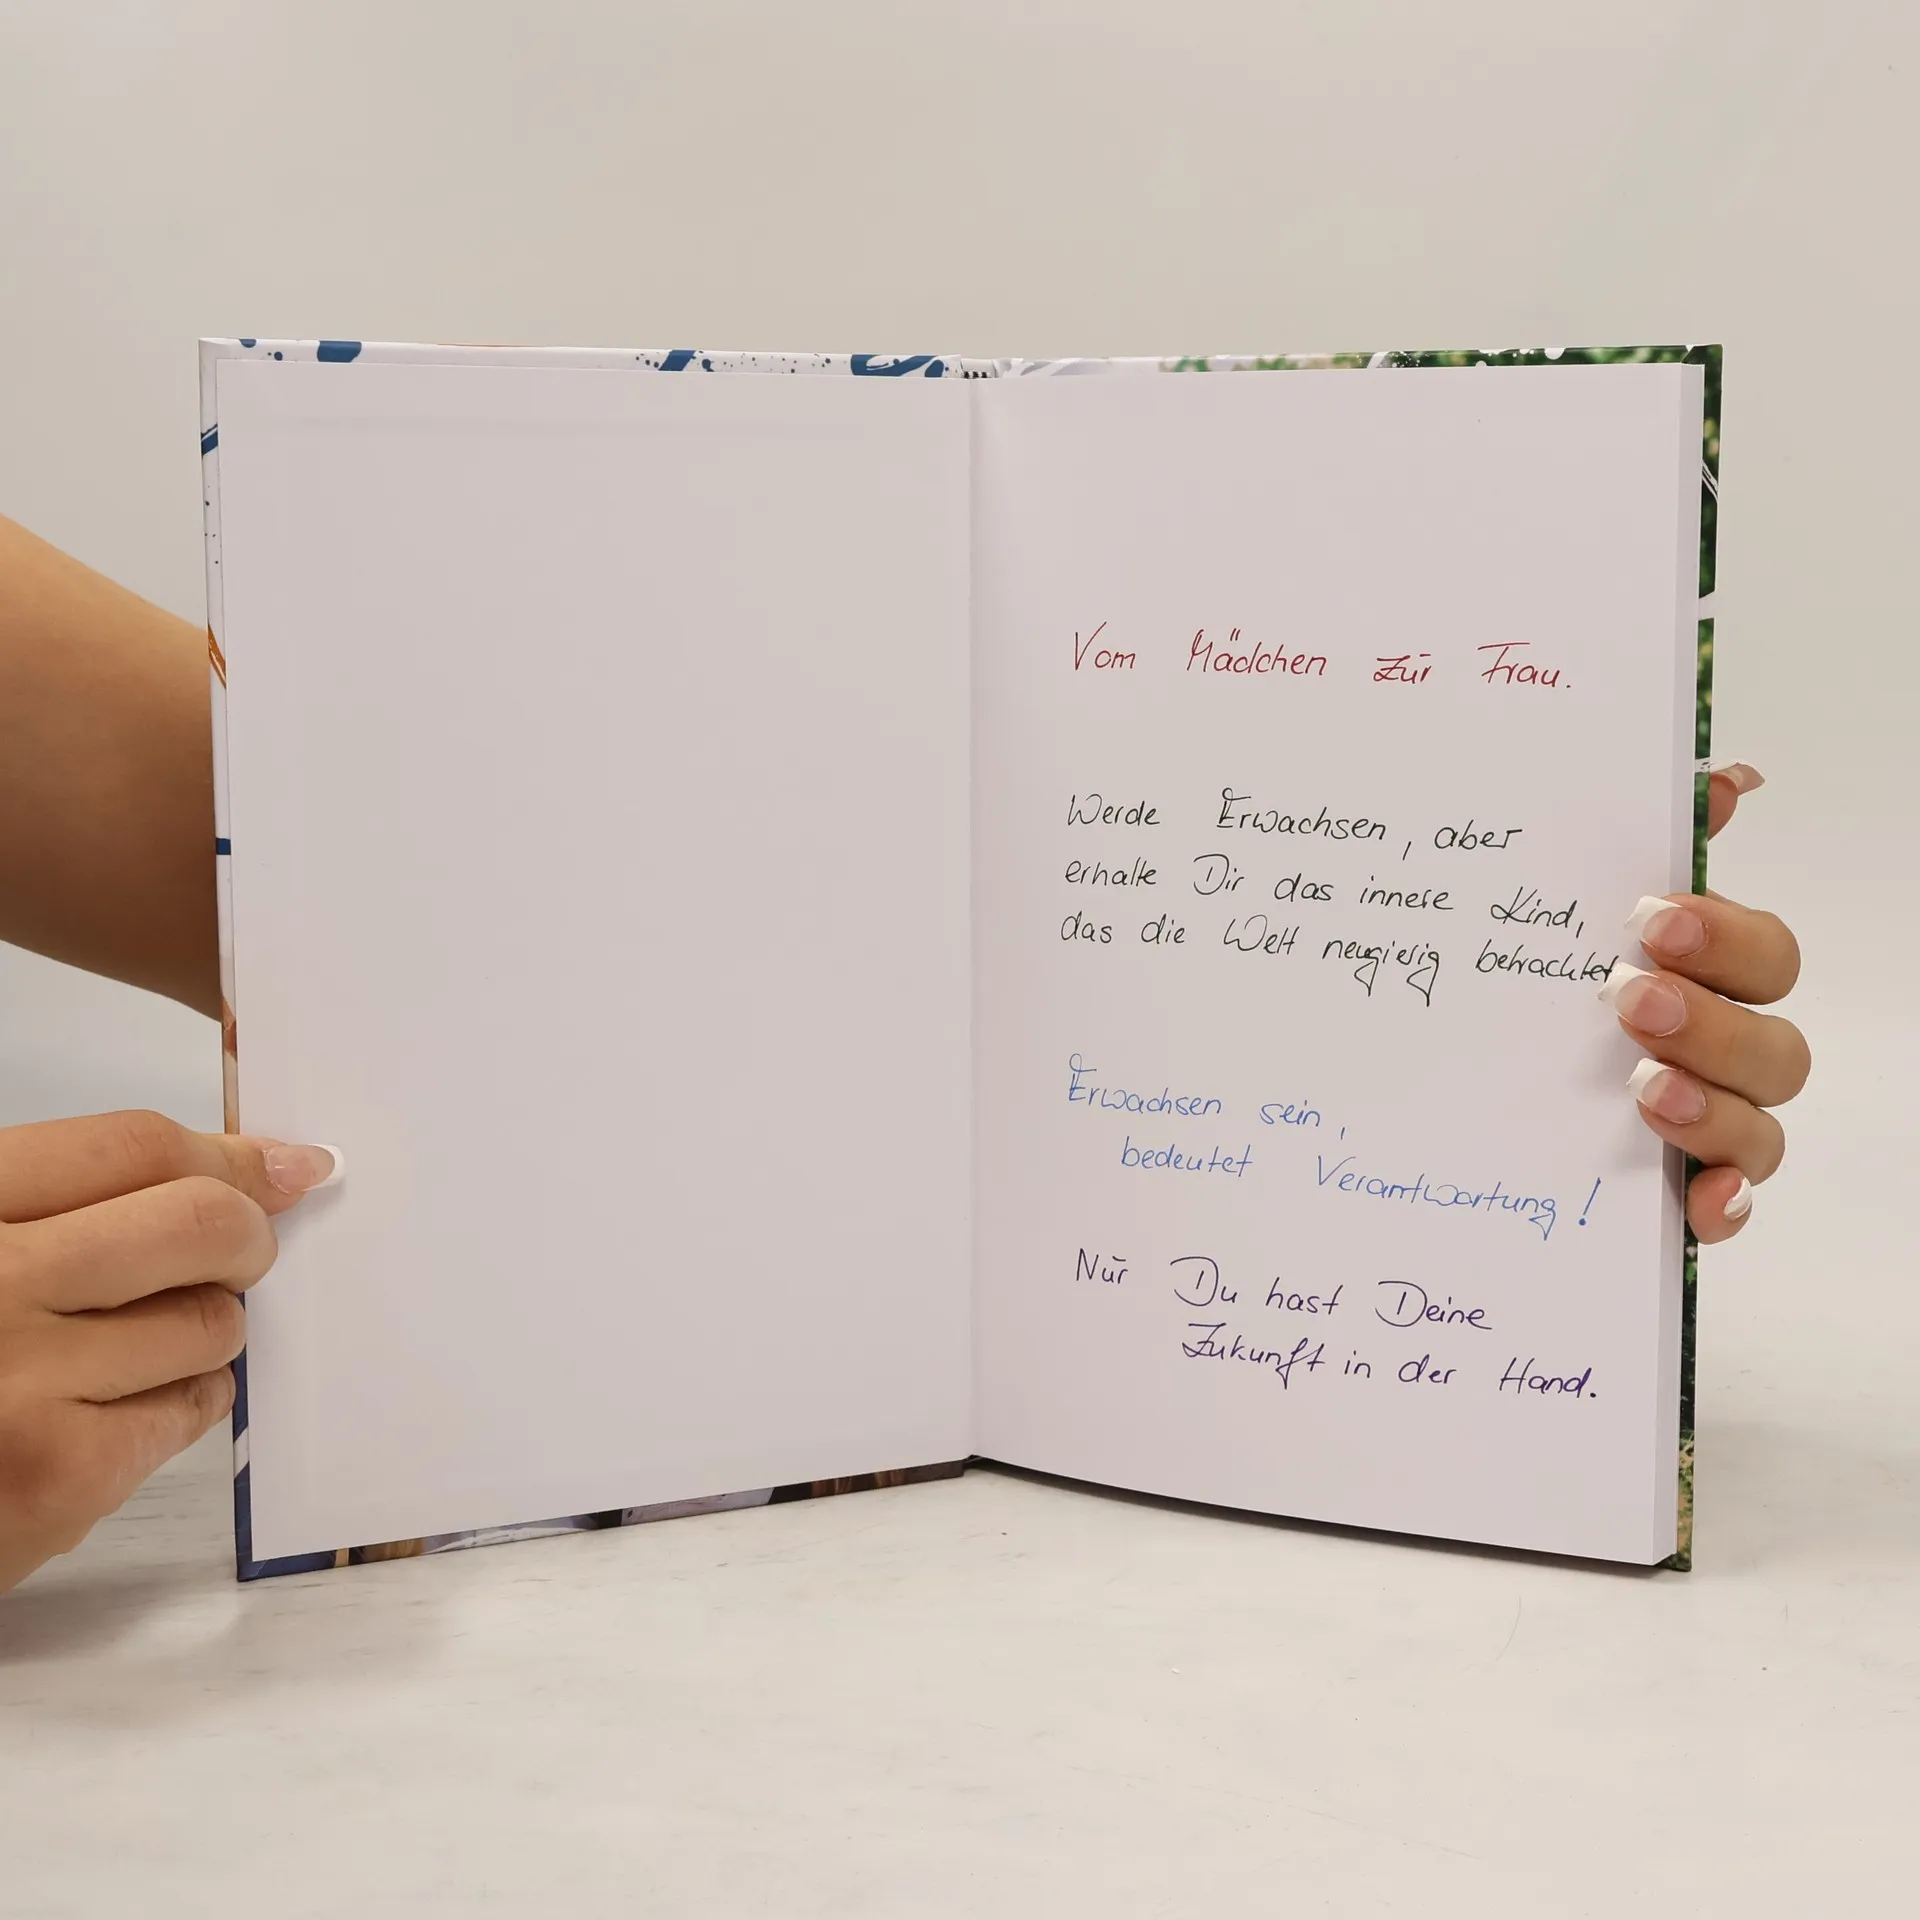 Vom Mädchen zur Frau.
Werde Erwachsen, aber
erhalte Dir das innere Kind,
das die Welt neugierig betrachtet
Erwachsen sein,
bedeutet Verantwortung!
Nur Du hast Deine
Zukunft in der Hand.